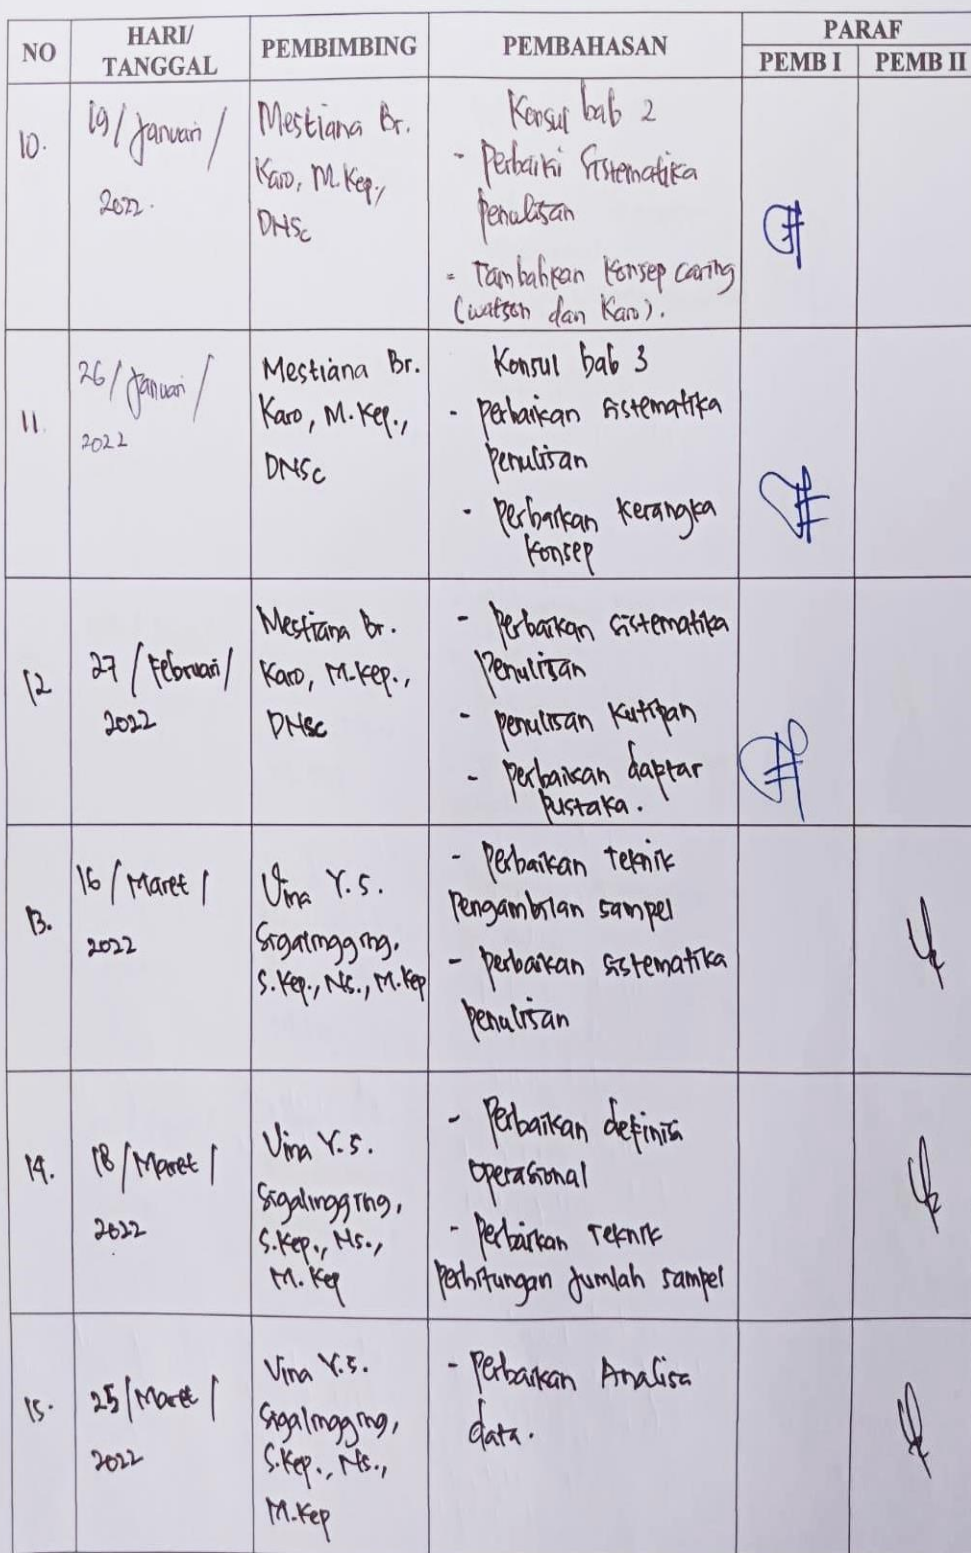 NO
HARI/
TANGGAL
PEMBIMBING
PEMBAHASAN
PARAF
PEMB I
PEMB II
10.
19/Januari/
2022.
Mestiana Br.
Karo, M.Kep.,
DNSc
Konsul bab 2
- Perbaiki Sistematika
penulisan
- Tambahkan Konsep caring
(watson dan Karo).
11.
26/Januari/
2022
Mestiana Br.
Karo, M.Kep.,
DNSc
Konsul bab 3
- perbaikan sistematika
penulisan
- perbaikan kerangka
konsep
12
27/Februari/
2022
Mestiana Br.
Karo, M.Kep.,
DNSc
- perbaikan sistematika
penulisan
- penulisan kutipan
- perbaikan daptar
pustaka.
13.
16/Maret/
2022
Vina Y.S.
Sigalingging,
S.Kep., Ns., M.Kep
- perbaikan teknik
pengambilan sampel
- perbaikan sistematika
penulisan
14.
18/Maret/
2022
Vina Y.S.
Sigalingging,
S.Kep., Ns.,
M.Kep
- Perbaikan definisi
operasional
- Perbaikan Teknik
perhitungan jumlah sampel
15.
25/Maret/
2022
Vina Y.S.
Sigalingging,
S.Kep., Ns.,
M.Kep
- perbaikan Analisa
data.